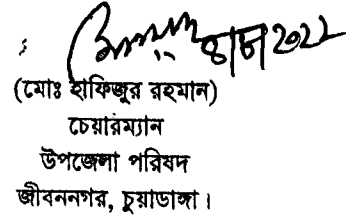 (মোঃ হাফিজুর রহমান)
চেয়ারম্যান
উপজেলা পরিষদ
জীবননগর, চুয়াডাঙ্গা।